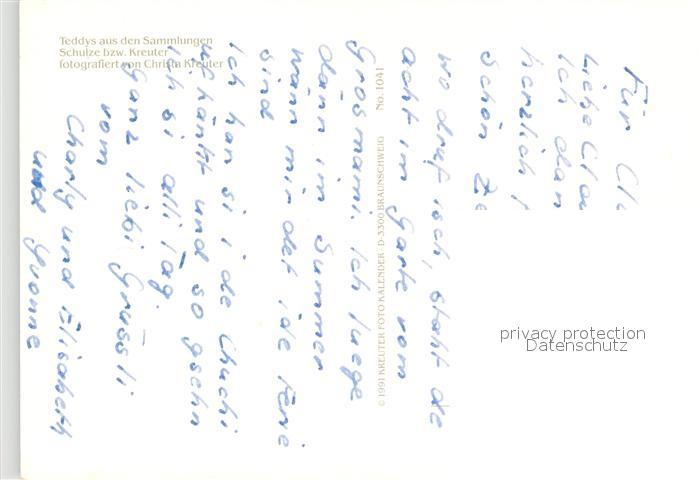 Teddys aus den Sammlungen
Schulze bzw. Kreuter
fotografiert von Christa Kreuter
© 1991 KREUTER FOTO KALENDER · D-3300 BRAUNSCHWEIG No. 1041
Für Cl
Liebe Cla
Ich dan
herzlich f
schön Ze
wo druf isch, staht de
acht im Garte vom
Grosmami. Ich luege
dann im Summer
wänn mir det i de Ferie
sind
Ich han si i de Chuchi
ufhänkt und so gsehn
ich si alli Tag.
Ganz liebi Grüssli
vom
Charly und Elisabeth
und Yvonne
privacy protection
Datenschutz